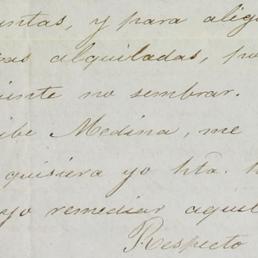 untas, y para alig
as alquiladas, po
iente no sembrar.
ibe Medina, me
quisiera yo hta.
yo remediar aquel
Respecto